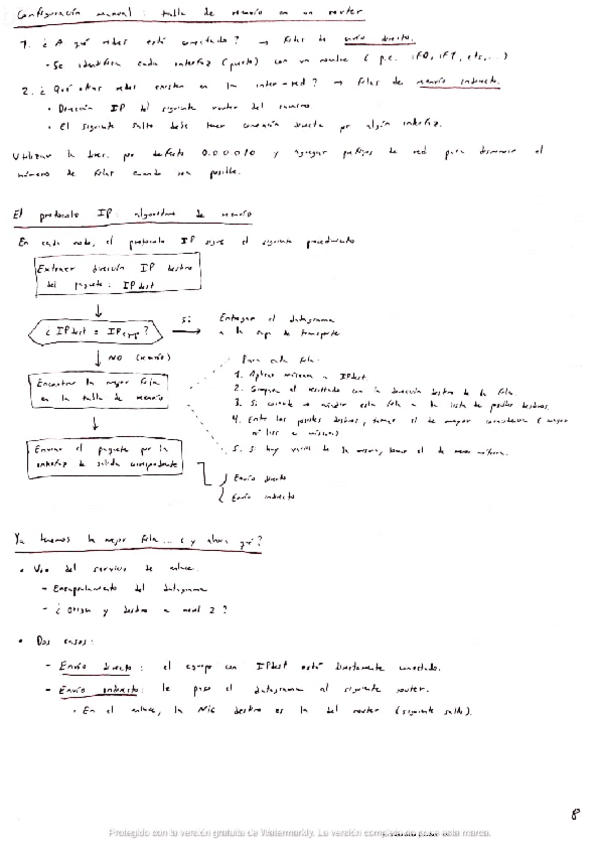 Configuración manual: tabla de reenvío en un router
1. ¿A qué redes está conectado? → Filas de envío directo.
· Se identifica cada interfaz (puerto) con un nombre (p.e. if0, if1, etc,...)
2. ¿Qué otras redes existen en la inter-red? → Filas de reenvío indirecto.
· Dirección IP del siguiente router del camino
· El siguiente salto debe tener conexión directa por algún interfaz.
Utilizar la direc. por defecto 0.0.0.0/0 y agregar prefijos de red para disminuir el
número de filas cuando sea posible.
El protocolo IP: algoritmo de reenvío
En cada nodo, el protocolo IP sigue el siguiente procedimiento
Extraer dirección IP destino
del paquete: IPdest
¿IPdest = IPequipo?
Sí
Entregar el datagrama
a la capa de transporte
NO (reenvío)
Encontrar la mejor fila
en la tabla de reenvío
Para cada fila:
1. Aplicar máscara a IPdest.
2. Comparar el resultado con la dirección destino de la fila.
3. Si coincide añadir esta fila a la lista de posibles destinos.
4. Entre los posibles destinos, tomar el de mayor coincidencia (mayor
nº bits a máscara)
5. Si hay varios de la misma, tomar el de menor métrica.
Enviar el paquete por la
interfaz de salida correspondiente
Envío directo
Envío indirecto
Ya tenemos la mejor fila... ¿y ahora qué?
• Uso del servicio de enlace.
- Encapsulamiento del datagrama
- ¿Origen y destino a nivel 2?
• Dos casos:
- Envío directo: el equipo con IPdest está directamente conectado.
- Envío indirecto: le paso el datagrama al siguiente router.
· En el enlace, la NIC destino es la del router (siguiente salto).
8
Protegido con la versión gratuita de Watermarkly. La versión completa no pone esta marca.